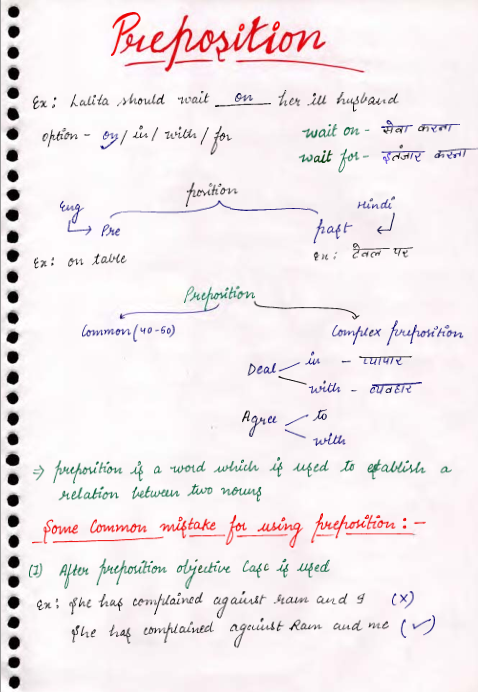 Preposition
Ex: Lalita should wait on her ill husband
option - on / in / with / for
wait on - सेवा करना
wait for - इतंजार करना
position
Eng
Hindi
Pre
past
Ex: on table
ex: टेबल पर
Preposition
Common (40-50)
Complex preposition
Deal
in - व्यापार
with - व्यवहार
Agree
to
with
⇒ preposition is a word which is used to establish a
relation between two nouns
Some Common mistake for using preposition : -
(1) After preposition objective Case is used
Ex: She has complained against ram and I (x)
She has complained against Ram and me (✓)